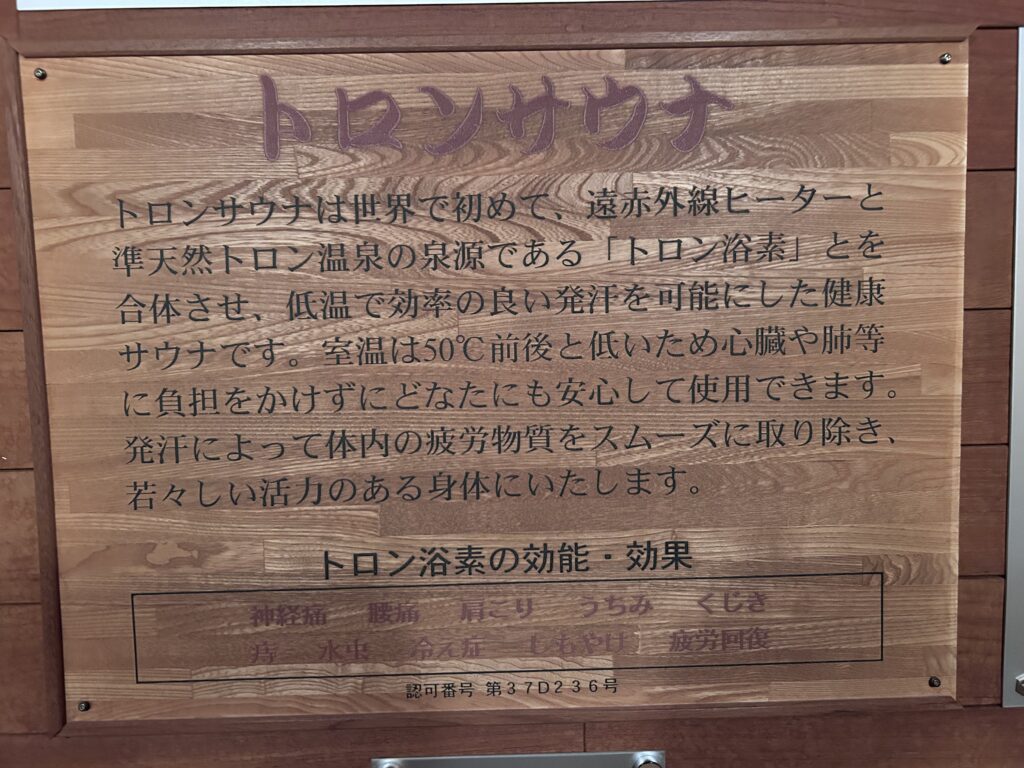 トロンサウナ
トロンサウナは世界で初めて、遠赤外線ヒーターと
準天然トロン温泉の泉源である「トロン浴素」とを
合体させ、低温で効率の良い発汗を可能にした健康
サウナです。室温は50℃前後と低いため心臓や肺等
に負担をかけずにどなたにも安心して使用できます。
発汗によって体内の疲労物質をスムーズに取り除き、
若々しい活力のある身体にいたします。
トロン浴素の効能・効果
神経痛 腰痛 肩こり うちみ くじき
痔 水虫 冷え症 しもやけ 疲労回復
認可番号 第37D236号